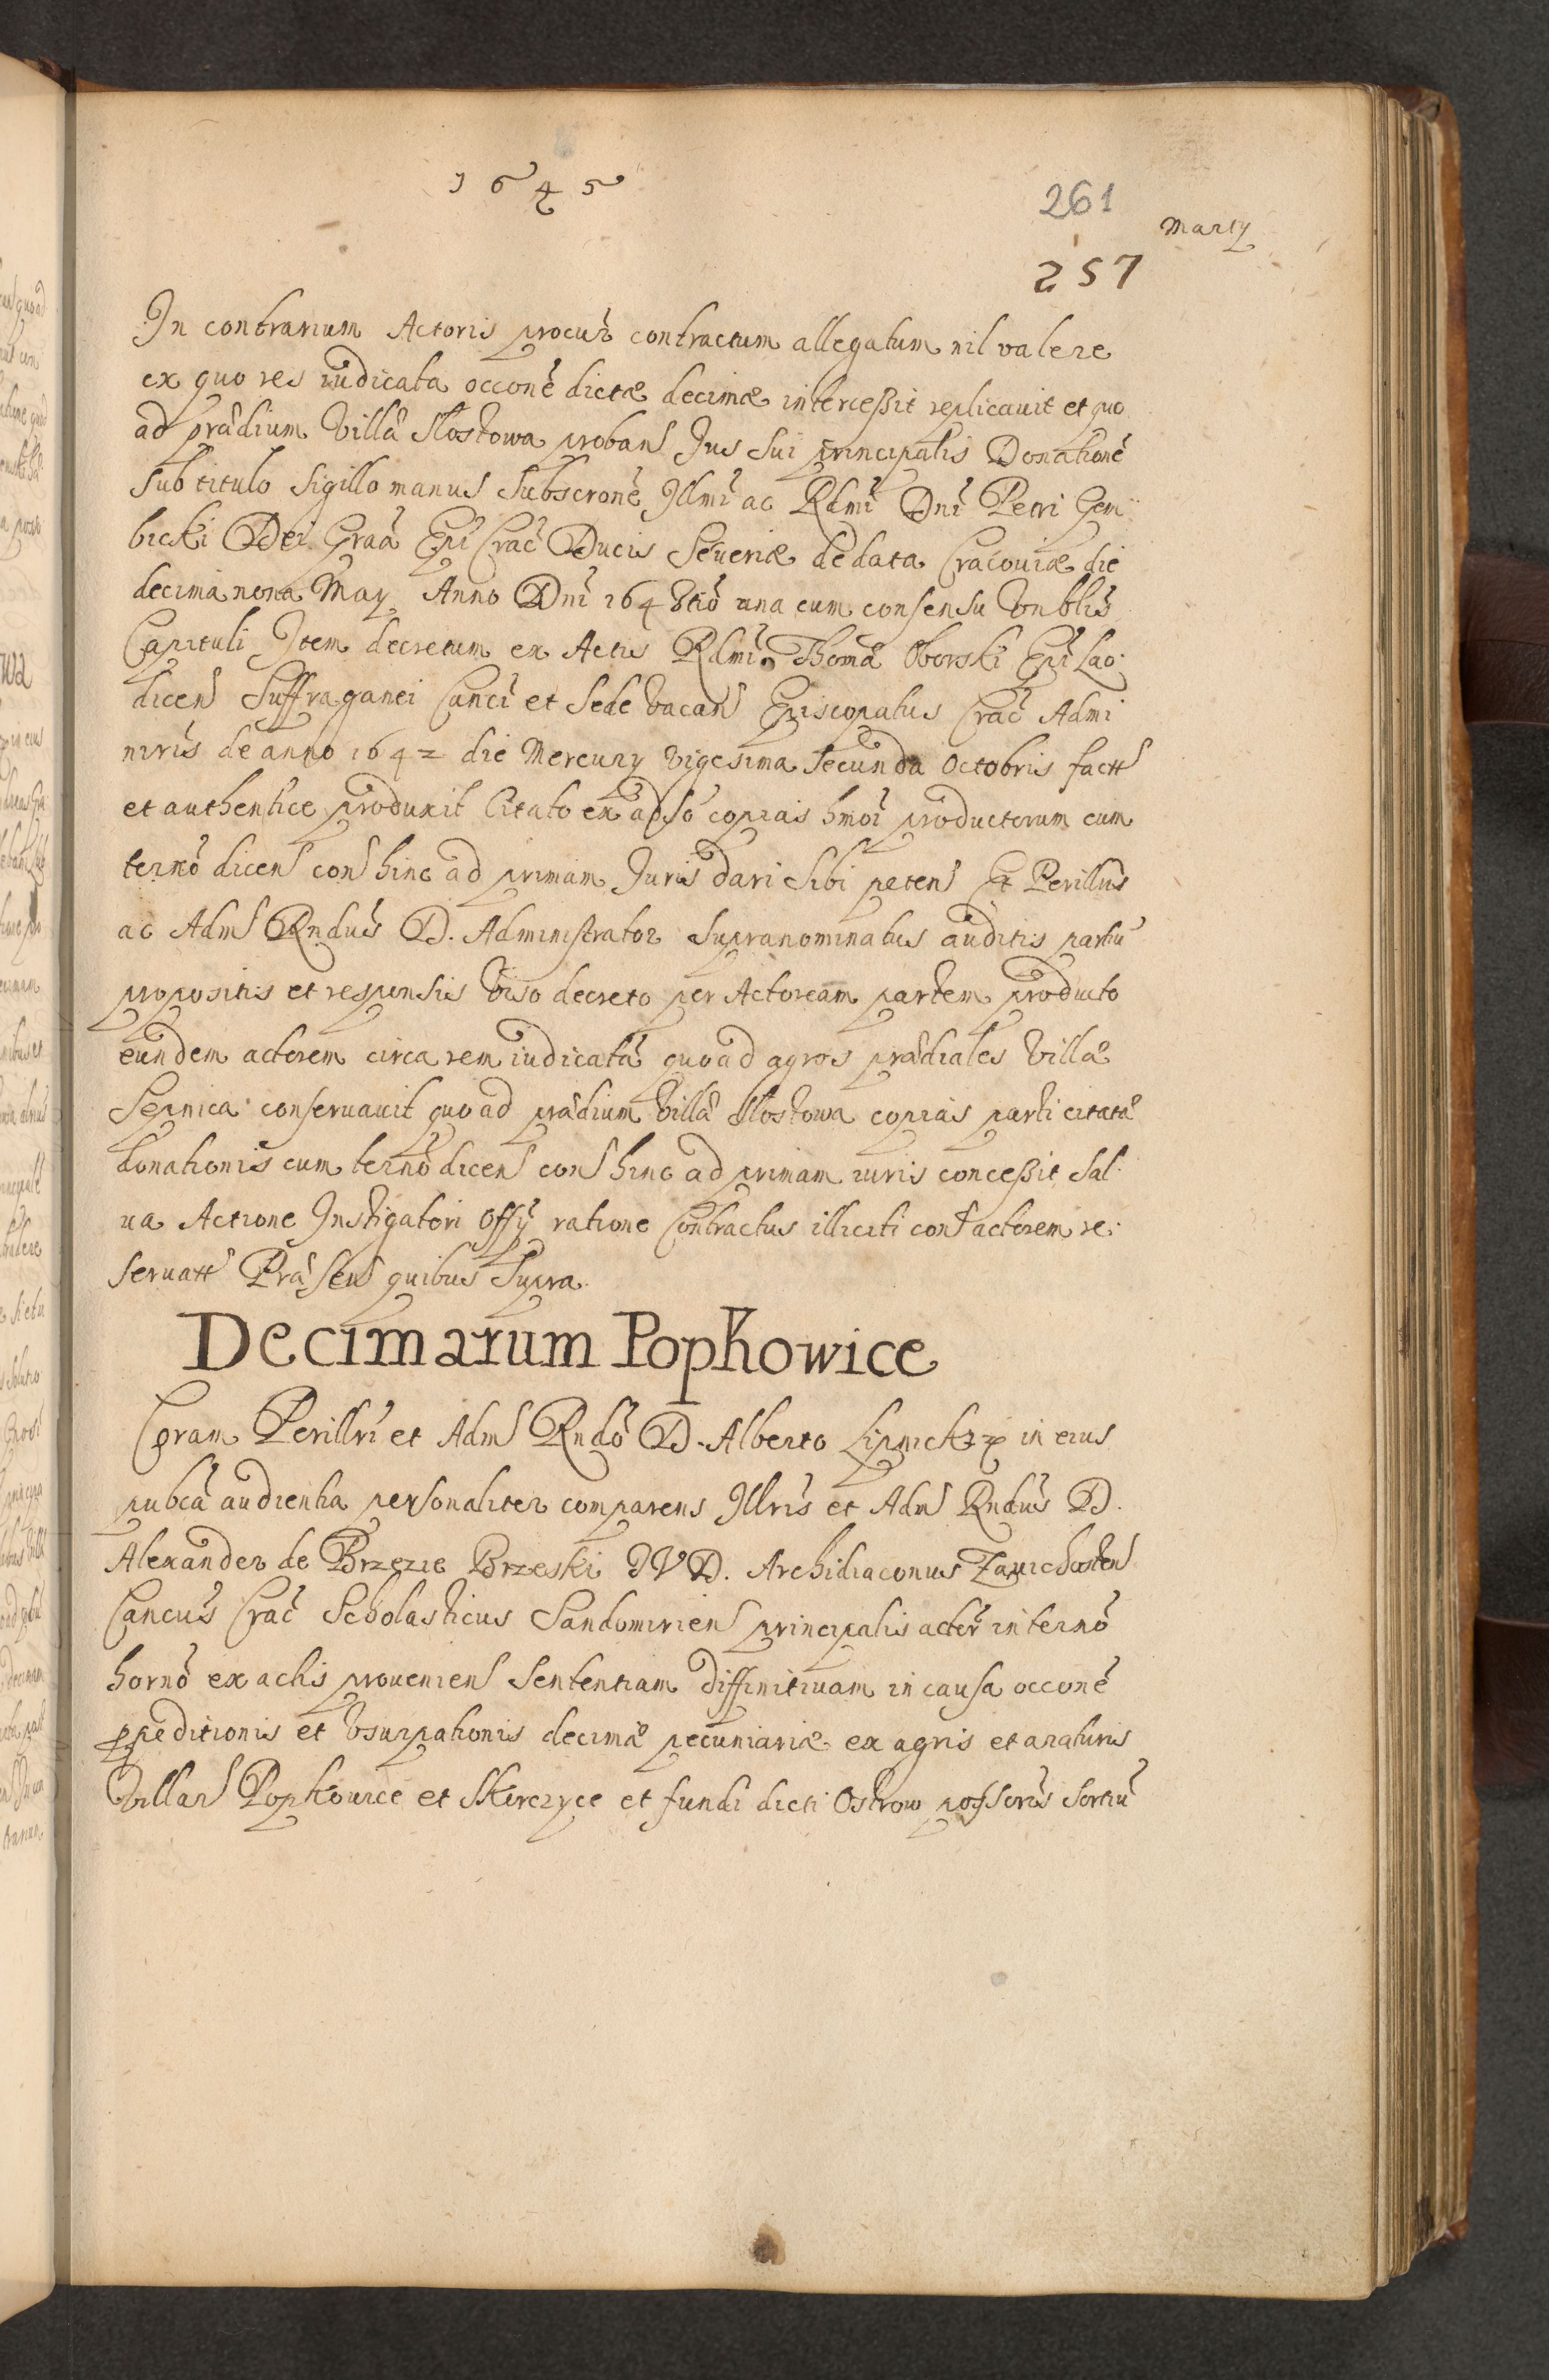 1645
261
Marty
257
In contrarium Actoris procur̃ contractum allegatum nil valere
ex quo res iudicata occone dictæ decimæ intercessit replicauit et quo
ad prædium Villæ Slostowa probans Jus sui principalis Donatione
sub titulo sigillo manus subscrone Illmi ac Rdmi Dni Petri Gem
bicki Dei Graa Epi Crac Ducis Seueriæ de data Cracouiæ die
decima nona May Anno Dni 1643tio una cum consensu Vnblis
Capituli Item decretum ex Actis Rdmi Thomæ Oborski Epi Lao
dicen Suffraganei Canci et Sede Vacan Episcopatus Crac Admi
niris de anno 1642 die Mercury vigesima secunda Octobris fact
et authentice produxit Citato ex adso copiais hmoi productorum cum
termo dicen con hinc ad primam Juris dari sibi peten Et Perillus
ac Adm Rndus D. Administrator supranominatus auditis partiu
propositis et responsis Viso decreto per Actoream partem producto
eundem actorem circa rem iudicatã quoad agros prædiales Villæ
Sepnica conseruauit quo ad prædium Villæ Slostowa copias parti citatæ
donationis cum termo dicen con hinc ad primam iuris concessit sal
ua Actione Instigatori Offy ratione Contractus illiciti con actorem re
seruatt Præsen quibus supra
Decimarum Popkowice
Coram Perillri et Adm Rndo D. Alberto Lipnicki in eius
pubca audientia personaliter comparens Illris et Adm Rndus D.
Alexander de Brzezie Brzeski JVD. Archidiaconus Zauichosten
Cancus Crac Scholasticus Sandomirien principalis actor in termo
horno ex actis prouenien sententiam diffinitiuam in causa occone
præpeditionis et Vsurpationis decimæ pecuniariæ ex agris et araturis
Villar Popkowice et Skorczyce et fundi dicti Ostrow possoris sortiu